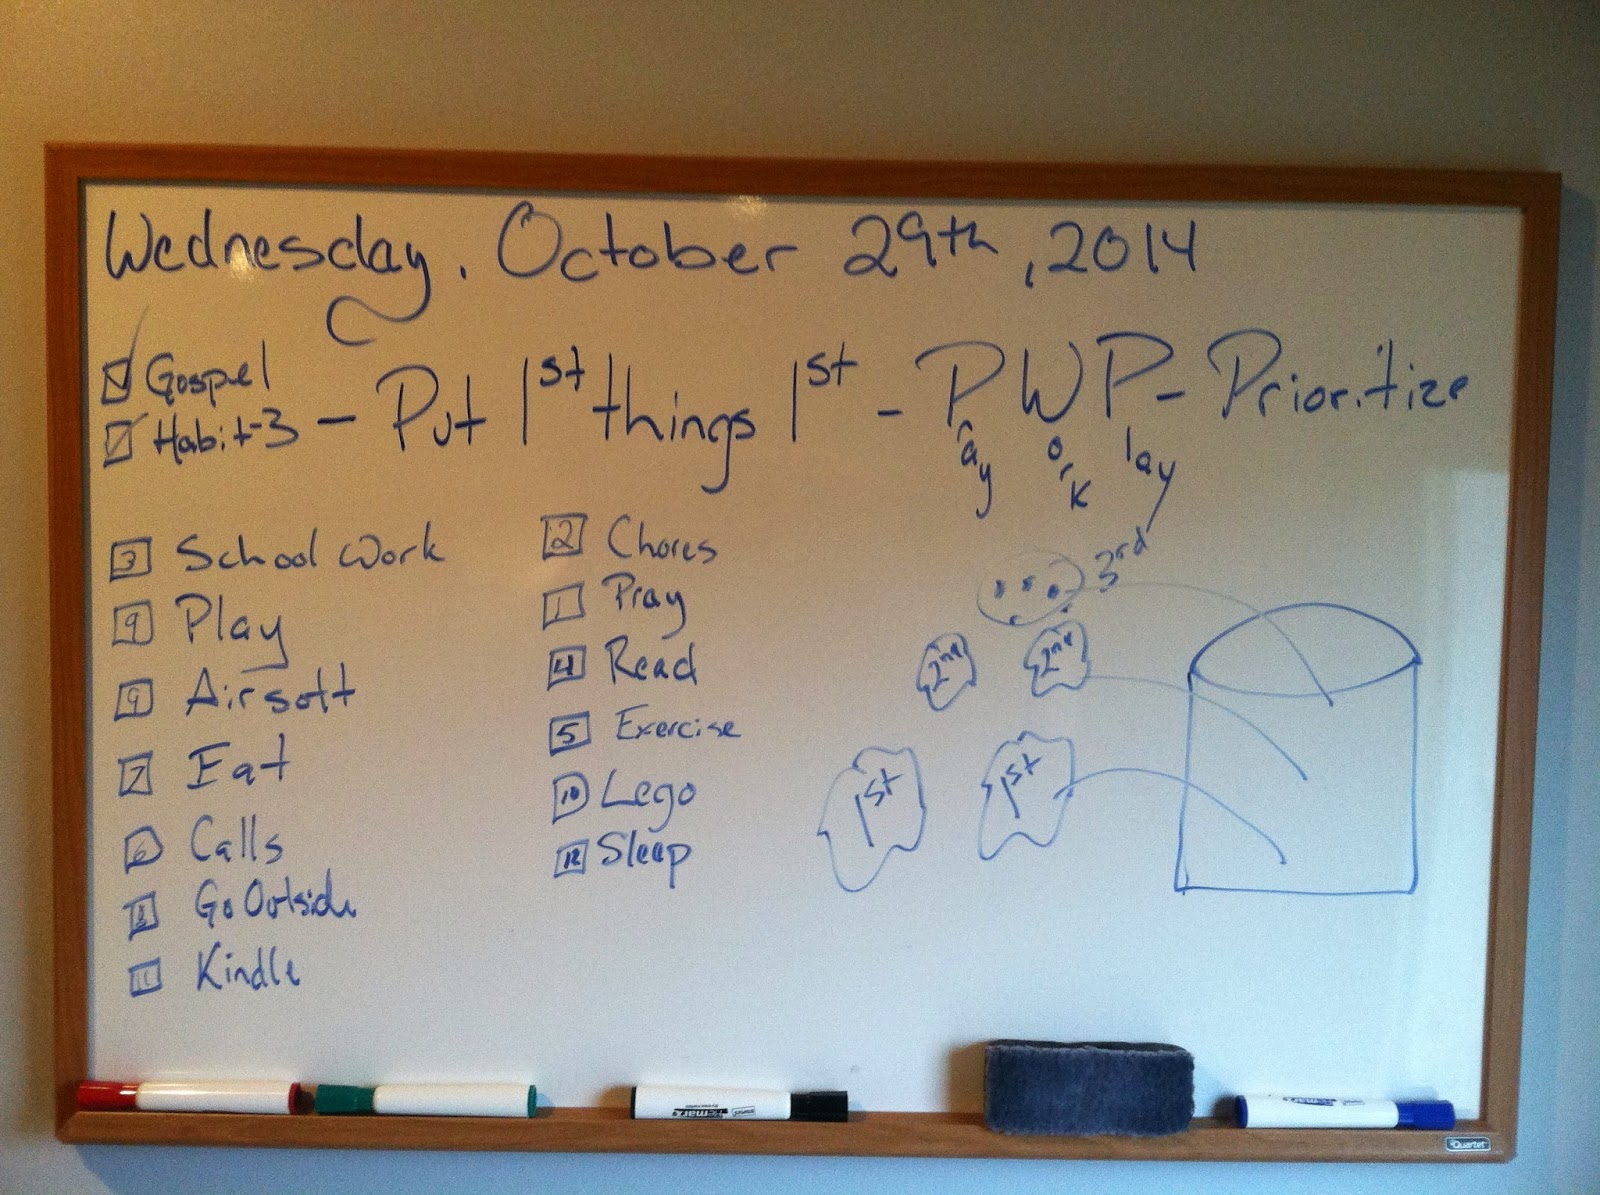 Wednesday, October 29th, 2014
Gospel
Habit-3 - Put 1st things 1st - PWP - Prioritize
Pray Work Play
3 School Work
9 Play
9 Airsoft
7 Eat
6 Calls
8 Go Outside
11 Kindle
2 Chores
1 Pray
4 Read
5 Exercise
10 Lego
12 Sleep
3rd
2nd 2nd
1st 1st
Quartet